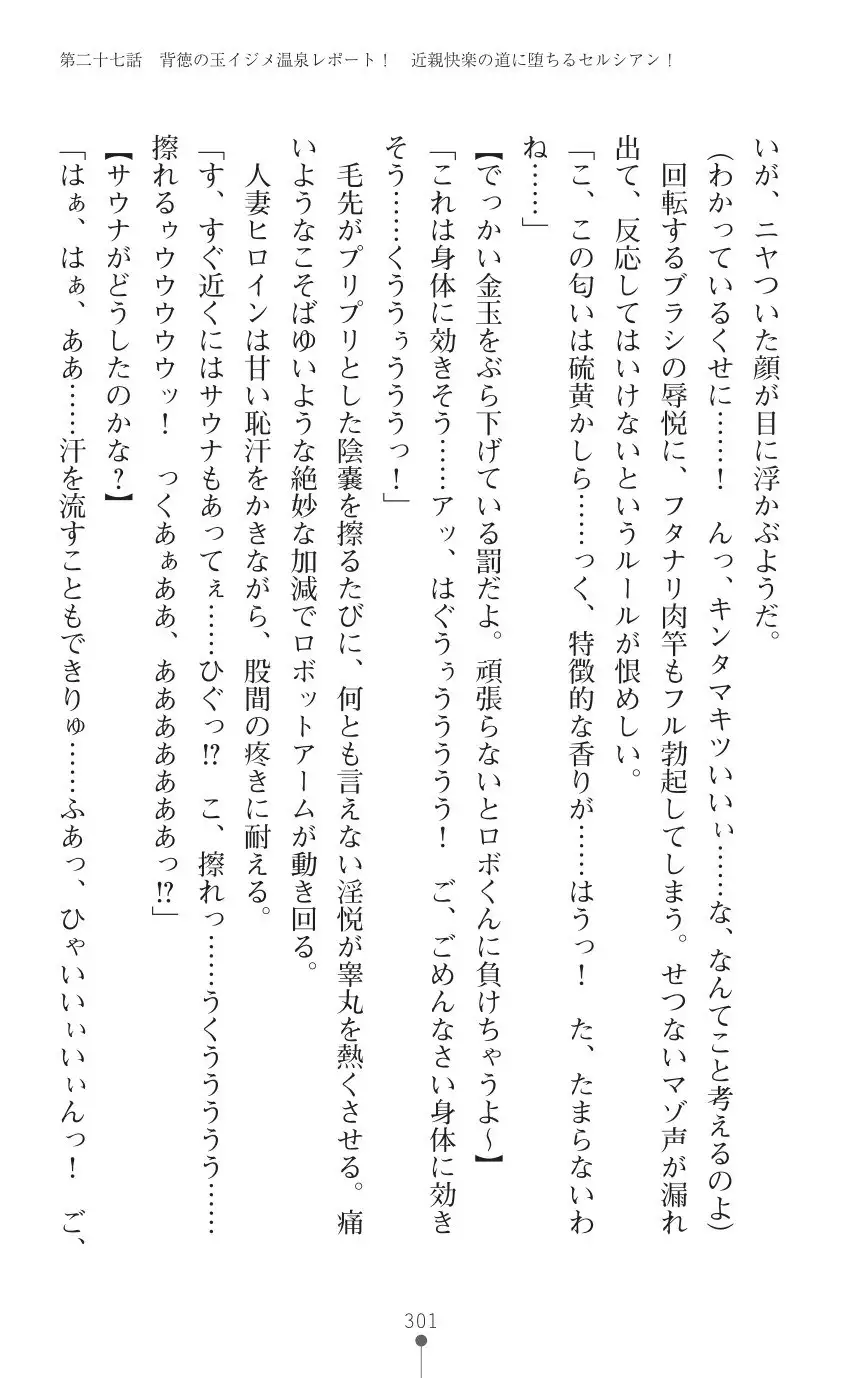 第二十七話　背徳の玉イジメ温泉レポート！　近親快楽の道に堕ちるセルシアン！
いが、ニヤついた顔が目に浮かぶようだ。
（わかっているくせに……！　んっ、キンタマキツいいぃ……な、なんてこと考えるのよ）
　回転するブラシの辱悦に、フタナリ肉竿もフル勃起してしまう。せつないマゾ声が漏れ
出て、反応してはいけないというルールが恨めしい。
「こ、この匂いは硫黄かしら……っく、特徴的な香りが……はうっ！　た、たまらないわ
ね……」
【でっかい金玉をぶら下げている罰だよ。頑張らないとロボくんに負けちゃうよ～】
「これは身体に効きそう……アッ、はぐうぅうううう！　ご、ごめんなさい身体に効き
そう……くううぅうううっ！」
　毛先がプリプリとした陰嚢を擦るたびに、何とも言えない淫悦が睾丸を熱くさせる。痛
いようなこそばゆいような絶妙な加減でロボットアームが動き回る。
　人妻ヒロインは甘い恥汗をかきながら、股間の疼きに耐える。
「す、すぐ近くにはサウナもあってぇ……ひぐっ!?　こ、擦れっ……うくううううう……
擦れるゥウウウウウッ！　っくあぁああ、ああああああああっ!?」
【サウナがどうしたのかな？】
「はぁ、はぁ、ああ……汗を流すこともできりゅ……ふあっ、ひゃいいぃいぃんっ！　ご、
301